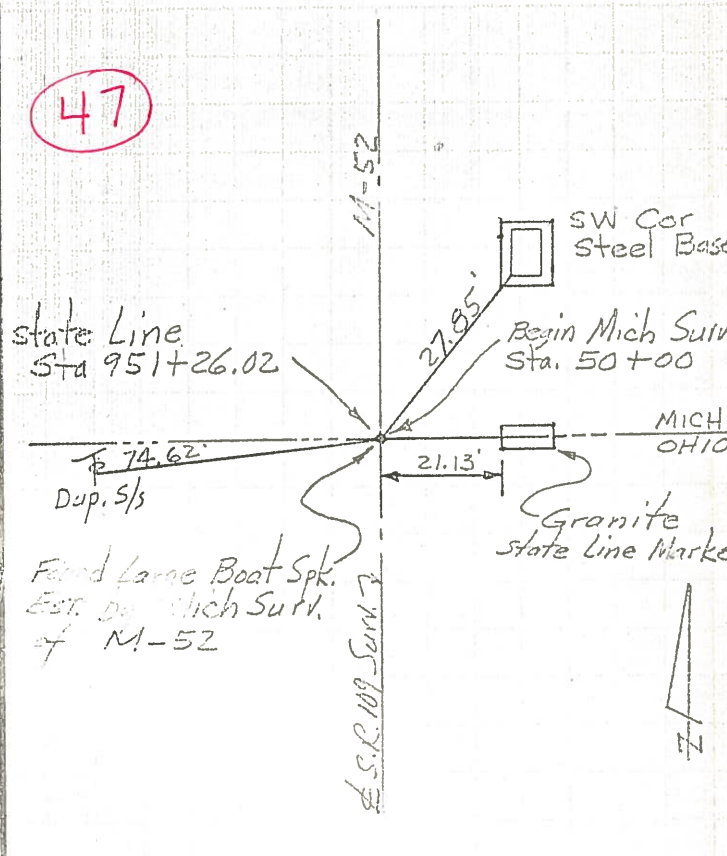 47
M-52
SW Cor
Steel Base
27.85'
State Line
Sta 951+26.02
Begin Mich Surv
Sta. 50+00
MICH
OHIO
74.62'
Dup. S/s
21.13'
Granite
State Line Marke
Found Large Boat Spk.
Est. by Mich Surv.
of M-52
℄ S.R. 109 Surv.
N